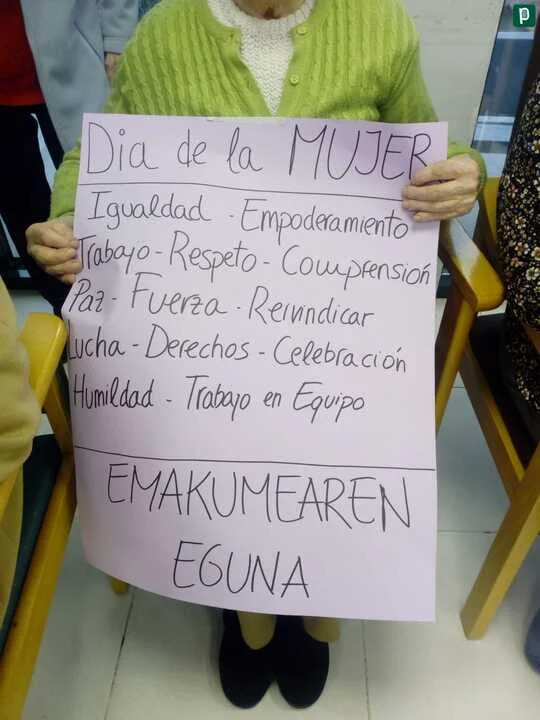 Dia de la MUJER
Igualdad - Empoderamiento
Trabajo - Respeto - Comprensión
Paz - Fuerza - Reivindicar
Lucha - Derechos - Celebración
Humildad - Trabajo en Equipo
EMAKUMEAREN
EGUNA
p